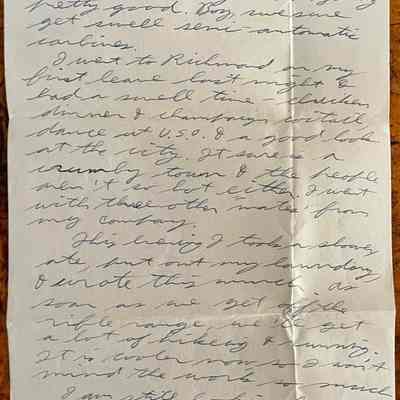 pretty good. Boy, we sure
get swell semi-automatic
carbines.
I went to Richmond on my
first leave last night &
had a swell time - chicken
dinner & champagn coctail,
dance at U.S.O. & a good look
at the city. It sure is a
crumby town & the people
aren't so hot either. I went
with three other "mates" from
my company.
This evening I took a shower
ate, put out my laundry
& wrote this much. As
soon as we get off the
rifle range, we'll get
a lot of hikeing & running.
It is cooler now so I won't
mind the work so much
I am still